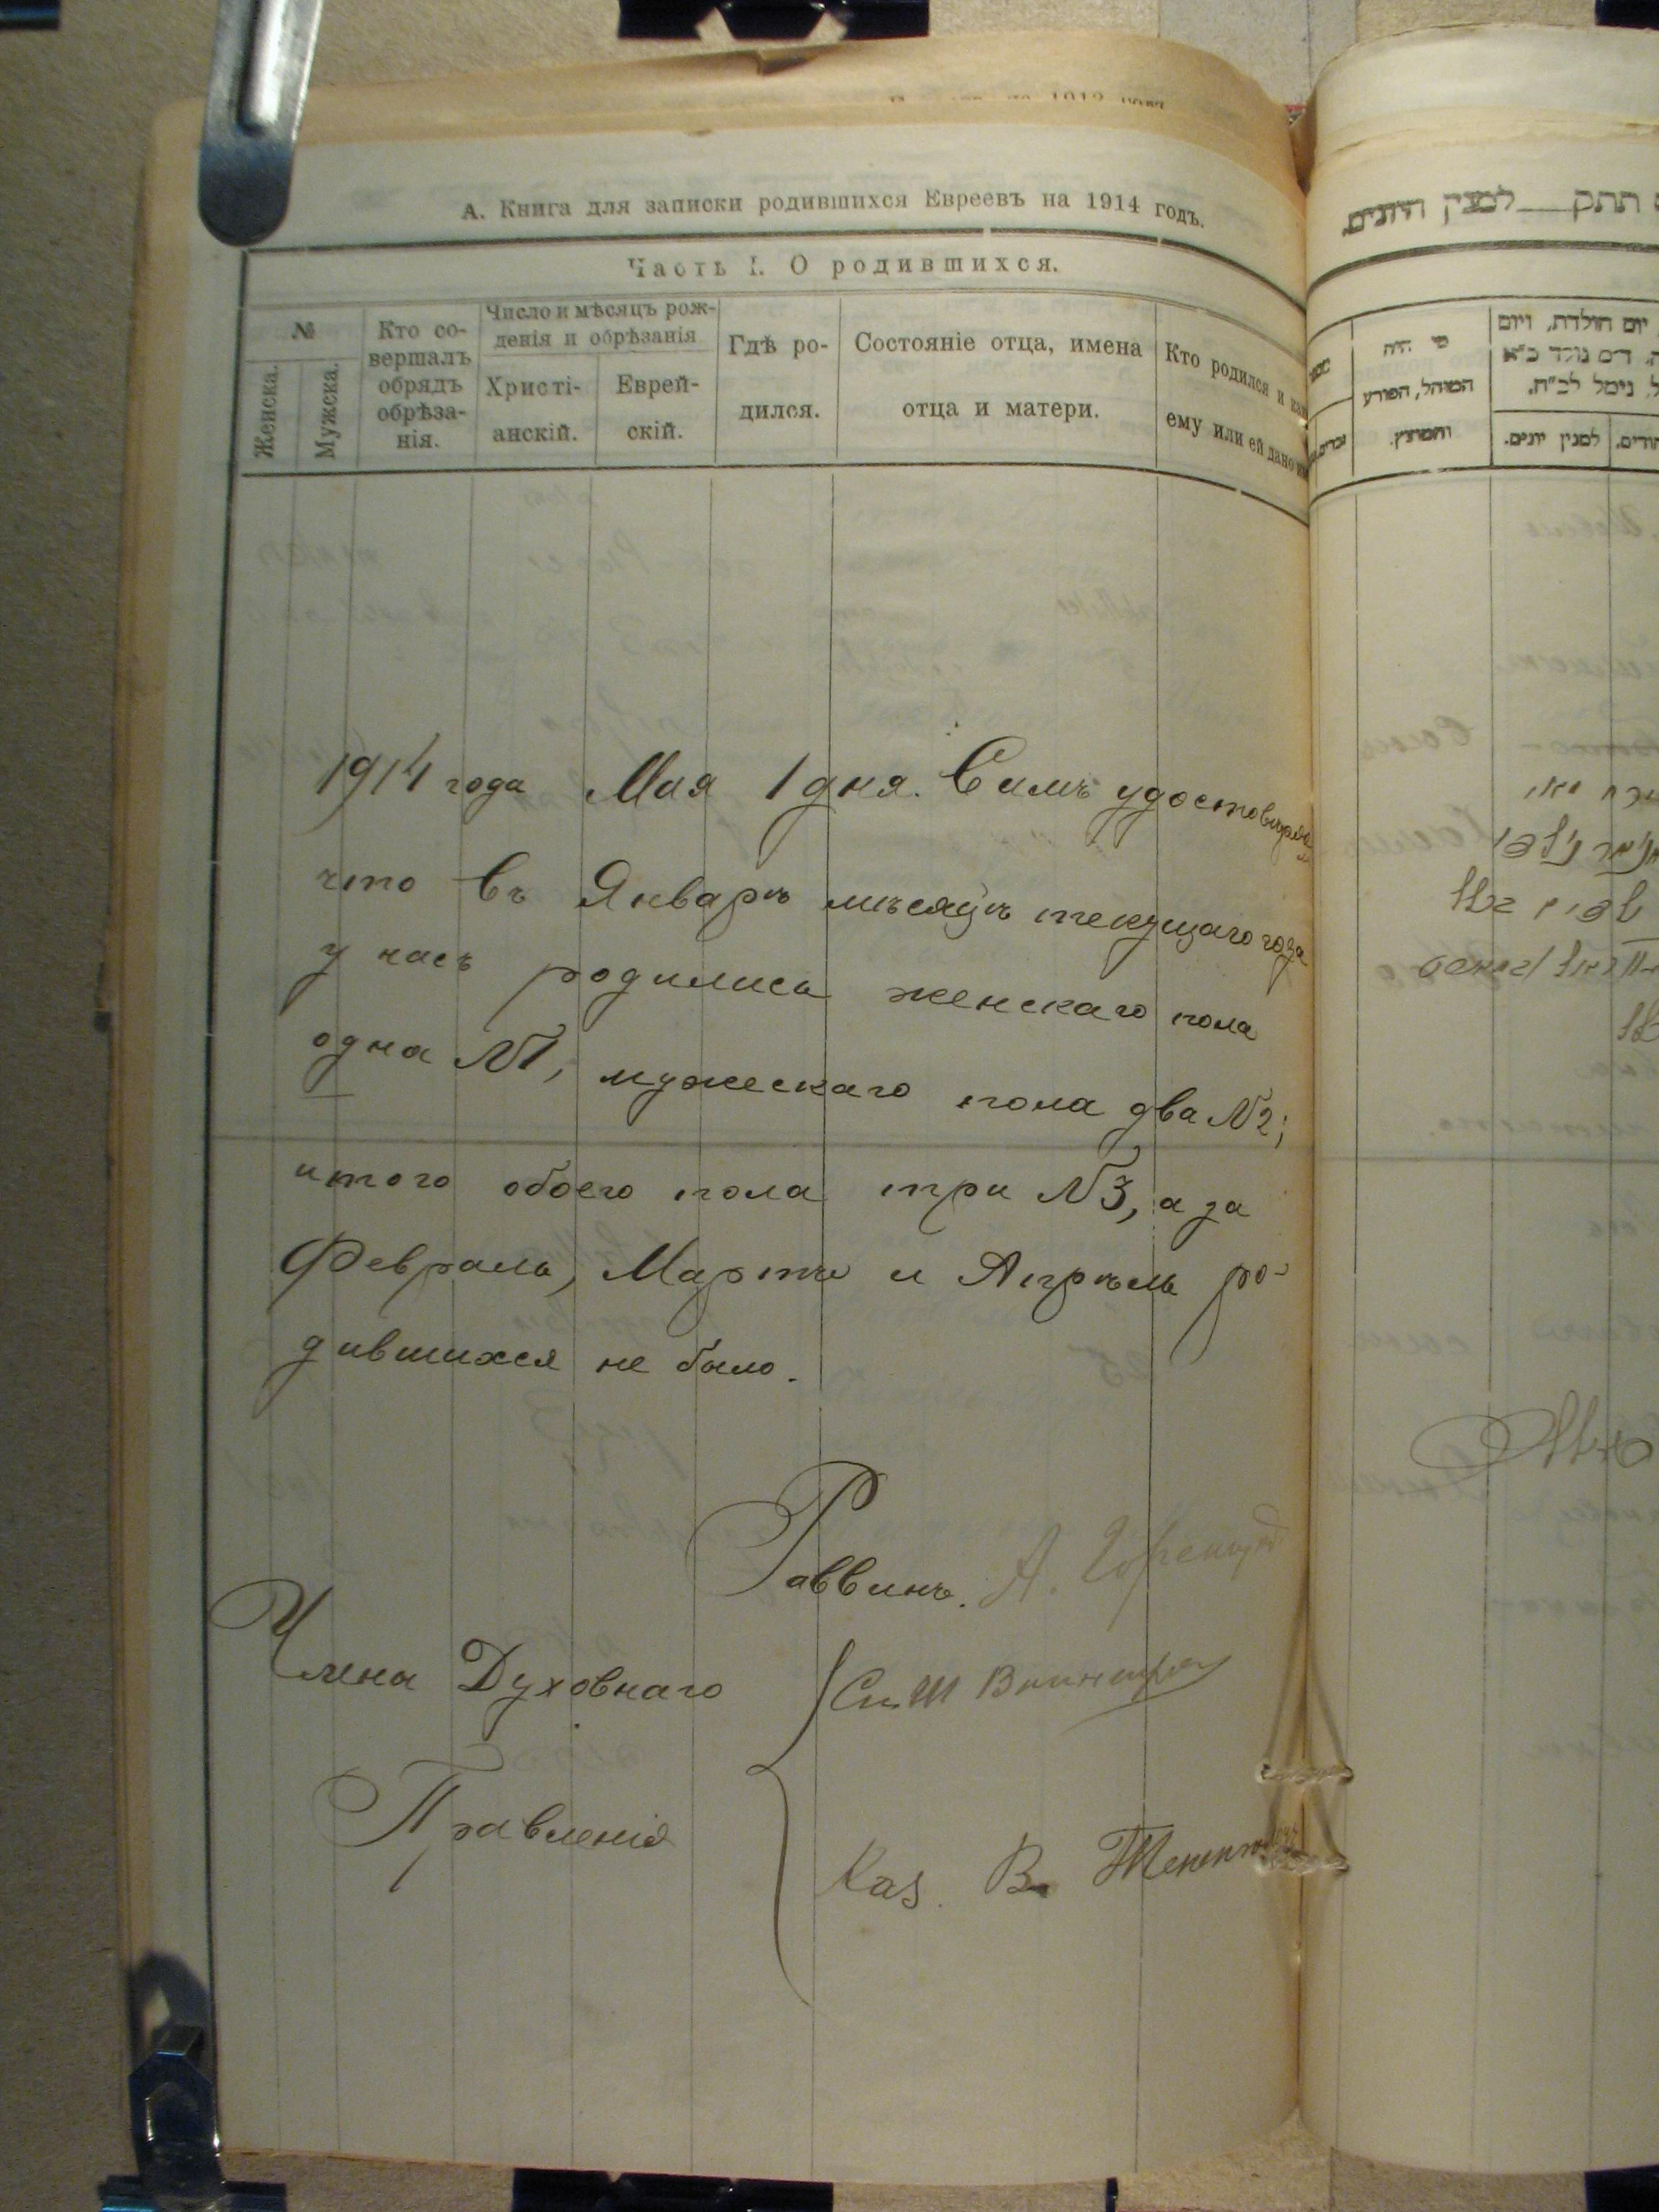 А. Книга для записки родившихся Евреевъ на 1914 годъ.
Часть I. О родившихся.
№
Женска.
Мужска.
Кто со-
вершалъ
обрядъ
обрѣза-
нія.
Число и мѣсяцъ рож-
денія и обрѣзанія
Христі-
анскій.
Еврей-
скій.
Гдѣ ро-
дился.
Состояніе отца, имена
отца и матери.
Кто родился и как
ему или ей дано
1914 года Мая 1 дня. Симъ удостовѣряемъ
что въ Январѣ мѣсяцѣ текущаго года
у насъ родились женскаго пола
одна №1, мужескаго пола два №2;
итого обоего пола три №3, а за
Февраль, Мартъ и Апрѣль ро-
дившихся не было.
Раввинъ. А.
Члена Духовнаго
Правленія
Ш
Каз. В.
תתק למנין היונים
יום הולדת, ויום
נימל לב"ח.
מי היה
המוהל, הפורע
והמוצץ.
למנין יונים.